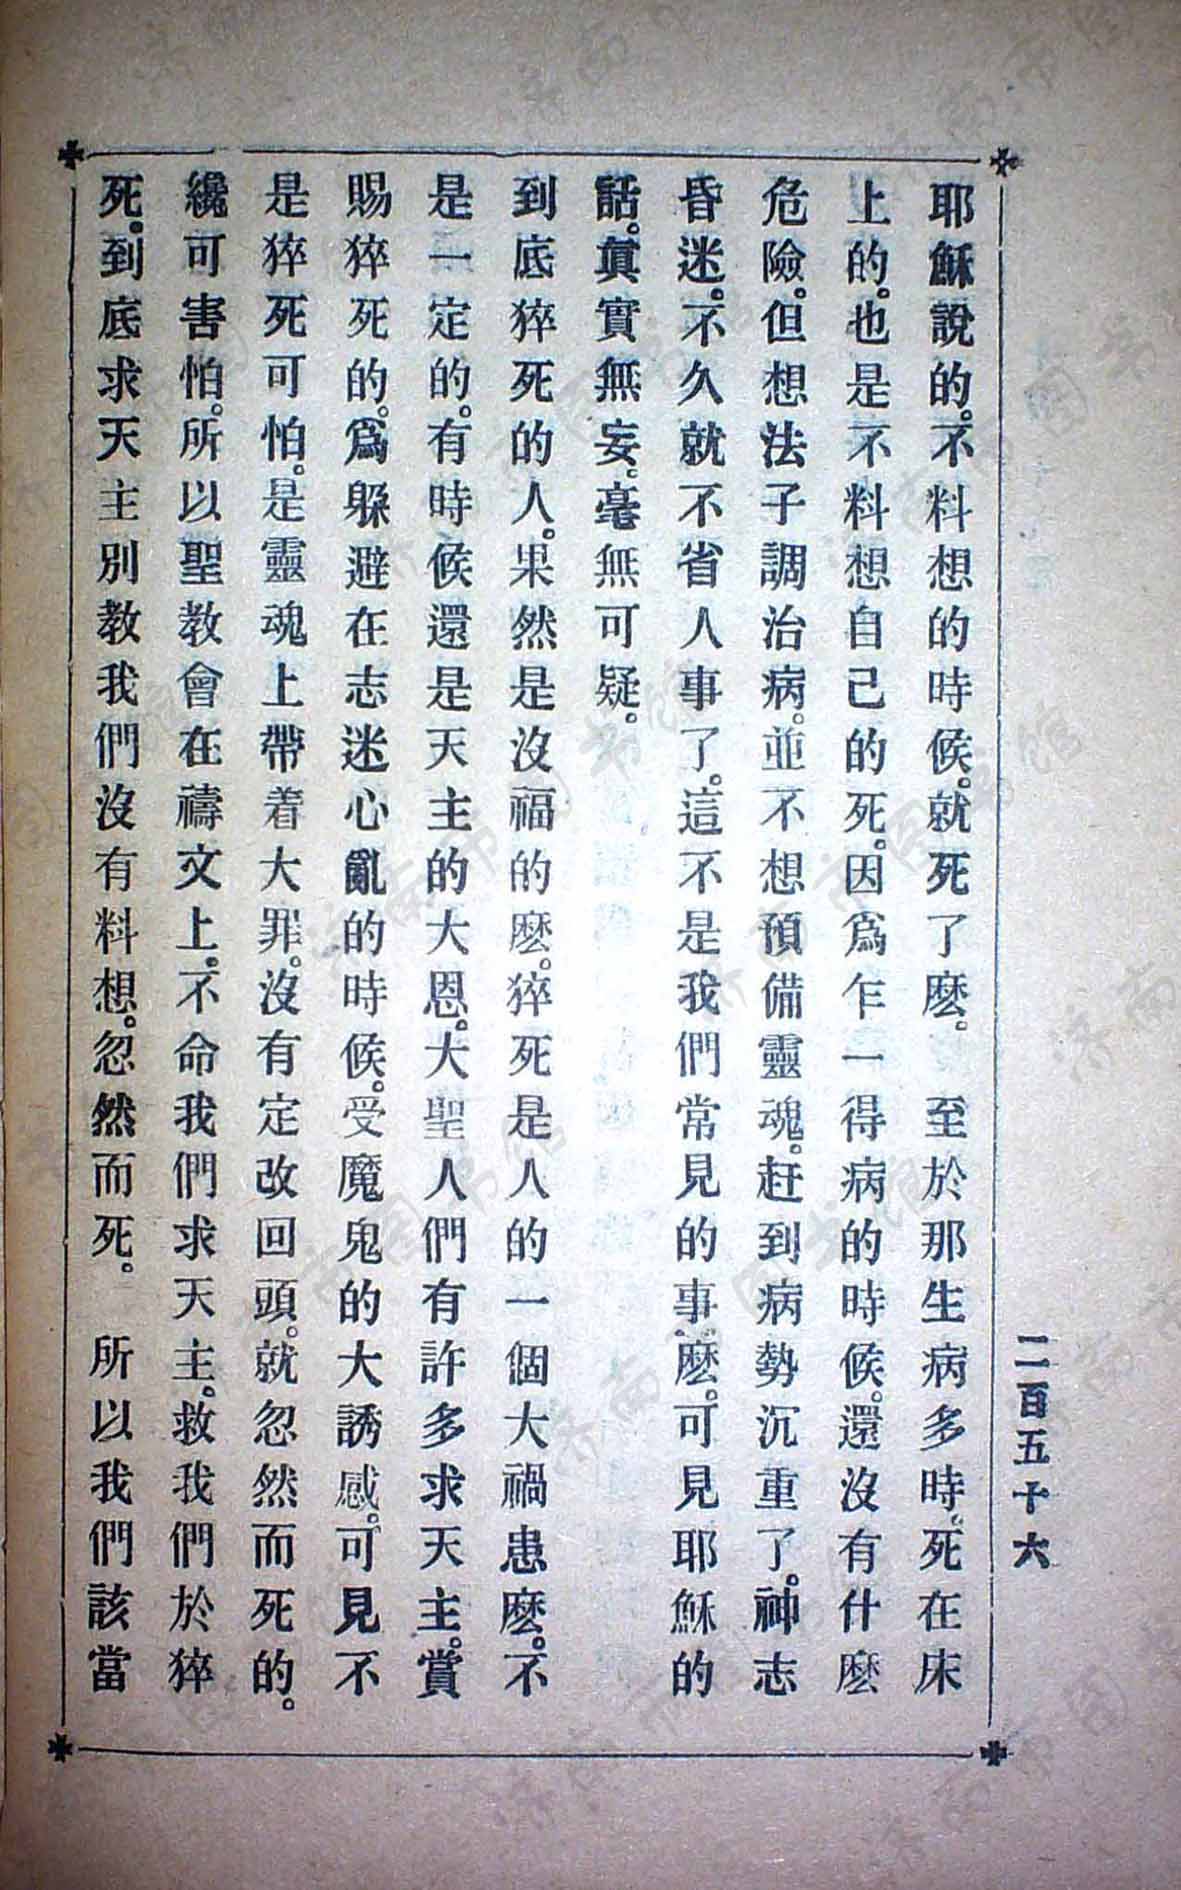 耶穌說的。不料想的時候。就死了麽。　至於那生病多時。死在床
上的。也是不料想自己的死。因爲乍一得病的時候。還沒有什麽
危險。但想法子調治病。並不想預備靈魂。赶到病勢沉重了。神志
昏迷。不久就不省人事了。這不是我們常見的事麽。可見耶穌的
話。眞實無妄。毫無可疑。
到底猝死的人。果然是沒福的麽。猝死是人的一個大禍患麽。不
是一定的。有時候還是天主的大恩。大聖人們有許多求天主。賞
賜猝死的。爲躲避在志迷心亂的時候。受魔鬼的大誘感。可見不
是猝死可怕。是靈魂上帶着大罪。沒有定改回頭。就忽然而死的。
纔可害怕。所以聖教會在禱文上。不命我們求天主。救我們於猝
死。到底求天主別教我們沒有料想。忽然而死。　所以我們該當
二百五十六
濟南市图书馆